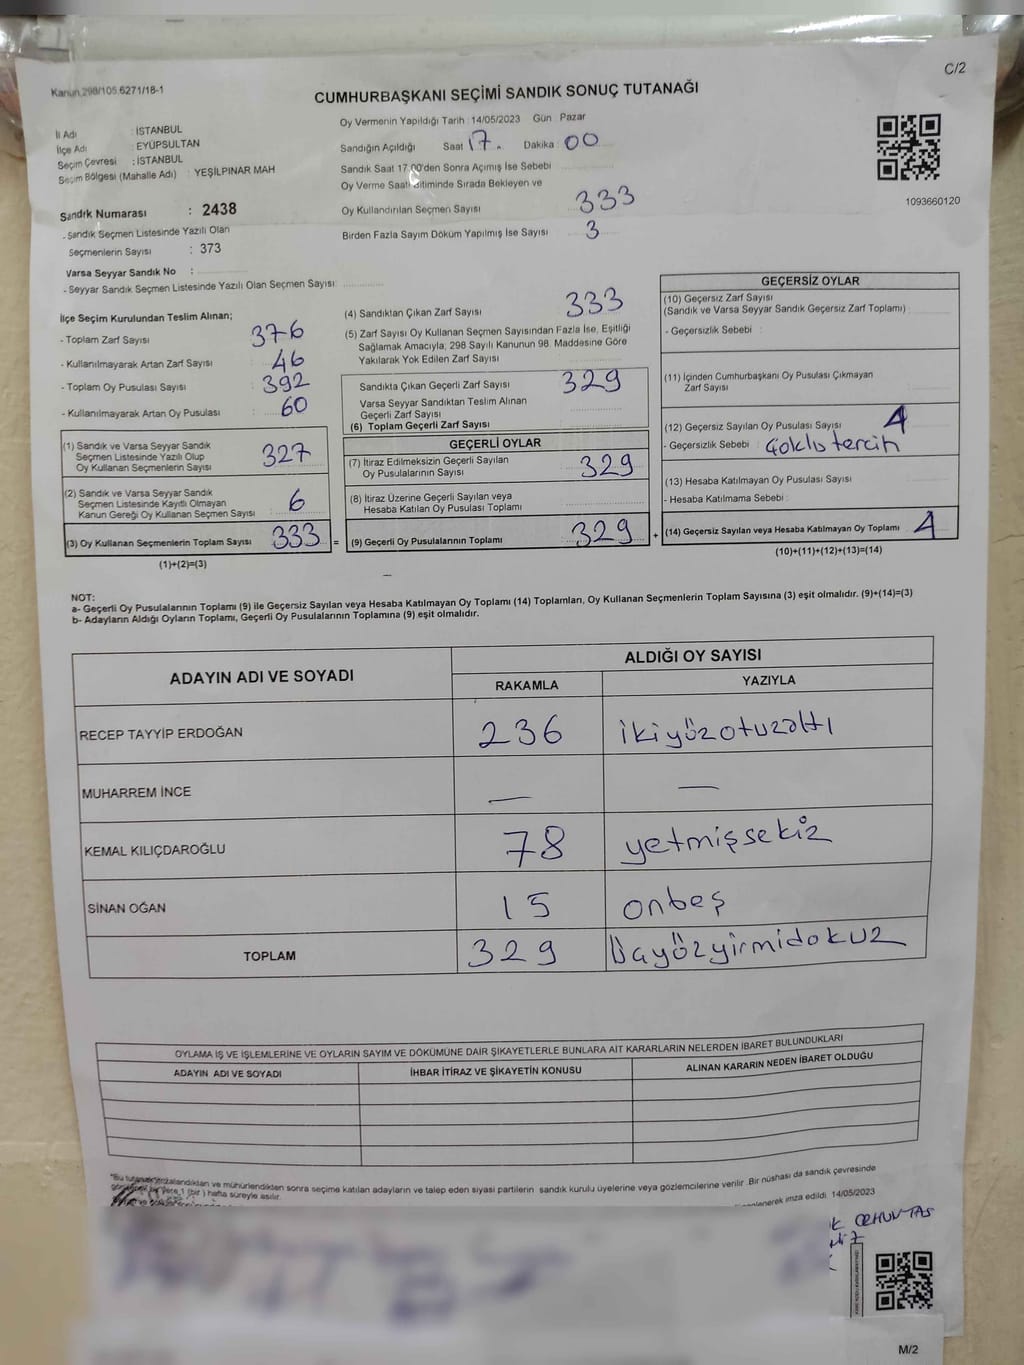 C/2
Kanun 298/105.6271/18-1
CUMHURBAŞKANI SEÇİMİ SANDIK SONUÇ TUTANAĞI
İl Adı : İSTANBUL
İlçe Adı : EYÜPSULTAN
Seçim Çevresi : İSTANBUL
Seçim Bölgesi (Mahalle Adı) : YEŞİLPINAR MAH
Oy Vermenin Yapıldığı Tarih : 14/05/2023 Gün : Pazar
Sandığın Açıldığı Saat 17. Dakika : 00
Sandık Saat 17.00'den Sonra Açımış İse Sebebi
Oy Verme Saati Bitiminde Sırada Bekleyen ve
Oy Kullandırılan Seçmen Sayısı 333
Birden Fazla Sayım Döküm Yapılmış İse Sayısı 3
1093660120
Sandık Numarası : 2438
- Sandık Seçmen Listesinde Yazılı Olan
Seçmenlerin Sayısı : 373
Varsa Seyyar Sandık No :
- Seyyar Sandık Seçmen Listesinde Yazılı Olan Seçmen Sayısı:
İlçe Seçim Kurulundan Teslim Alınan;
- Toplam Zarf Sayısı : 376
- Kullanılmayarak Artan Zarf Sayısı : 46
- Toplam Oy Pusulası Sayısı : 392
- Kullanılmayarak Artan Oy Pusulası : 60
(1) Sandık ve Varsa Seyyar Sandık
Seçmen Listesinde Yazılı Olup
Oy Kullanan Seçmenlerin Sayısı 327
(2) Sandık ve Varsa Seyyar Sandık
Seçmen Listesinde Kayıtlı Olmayan
Kanun Gereği Oy Kullanan Seçmen Sayısı 6
(3) Oy Kullanan Seçmenlerin Toplam Sayısı 333 =
(1)+(2)=(3)
(4) Sandıktan Çıkan Zarf Sayısı 333
(5) Zarf Sayısı Oy Kullanan Seçmen Sayısından Fazla İse, Eşitliği
Sağlamak Amacıyla, 298 Sayılı Kanunun 98. Maddesine Göre
Yakılarak Yok Edilen Zarf Sayısı
Sandıkta Çıkan Geçerli Zarf Sayısı 329
Varsa Seyyar Sandıktan Teslim Alınan
Geçerli Zarf Sayısı
(6) Toplam Geçerli Zarf Sayısı
GEÇERLİ OYLAR
(7) İtiraz Edilmeksizin Geçerli Sayılan
Oy Pusulalarının Sayısı 329
(8) İtiraz Üzerine Geçerli Sayılan veya
Hesaba Katılan Oy Pusulası Toplamı
(9) Geçerli Oy Pusulalarının Toplamı 329 +
GEÇERSİZ OYLAR
(10) Geçersiz Zarf Sayısı
(Sandık ve Varsa Seyyar Sandık Geçersiz Zarf Toplamı) :
- Geçersizlik Sebebi :
(11) İçinden Cumhurbaşkanı Oy Pusulası Çıkmayan
Zarf Sayısı
(12) Geçersiz Sayılan Oy Pusulası Sayısı 4
- Geçersizlik Sebebi : Çoklu tercih
(13) Hesaba Katılmayan Oy Pusulası Sayısı
- Hesaba Katılmama Sebebi :
(14) Geçersiz Sayılan veya Hesaba Katılmayan Oy Toplamı 4
(10)+(11)+(12)+(13)=(14)
NOT:
a- Geçerli Oy Pusulalarının Toplamı (9) ile Geçersiz Sayılan veya Hesaba Katılmayan Oy Toplamı (14) Toplamları, Oy Kullanan Seçmenlerin Toplam Sayısına (3) eşit olmalıdır. (9)+(14)=(3)
b- Adayların Aldığı Oyların Toplamı, Geçerli Oy Pusulalarının Toplamına (9) eşit olmalıdır.
ADAYIN ADI VE SOYADI ALDIĞI OY SAYISI
RAKAMLA YAZIYLA
RECEP TAYYİP ERDOĞAN 236 ikiyüzotuzaltı
MUHARREM İNCE — —
KEMAL KILIÇDAROĞLU 78 yetmişsekiz
SİNAN OĞAN 15 onbeş
TOPLAM 329 Üçyüzyirmidokuz
OYLAMA İŞ VE İŞLEMLERİNE VE OYLARIN SAYIM VE DÖKÜMÜNE DAİR ŞİKAYETLERLE BUNLARA AİT KARARLARIN NELERDEN İBARET BULUNDUKLARI
ADAYIN ADI VE SOYADI İHBAR İTİRAZ VE ŞİKAYETİN KONUSU ALINAN KARARIN NEDEN İBARET OLDUĞU
"Bu tutanak imzalandıktan ve mühürlendikten sonra seçime katılan adayların ve talep eden siyasi partilerin sandık kurulu üyelerine veya gözlemcilerine verilir. Bir nüshası da sandık çevresinde
yere 1 (bir) hafta süreyle asılır.
imza edildi 14/05/2023
M/2